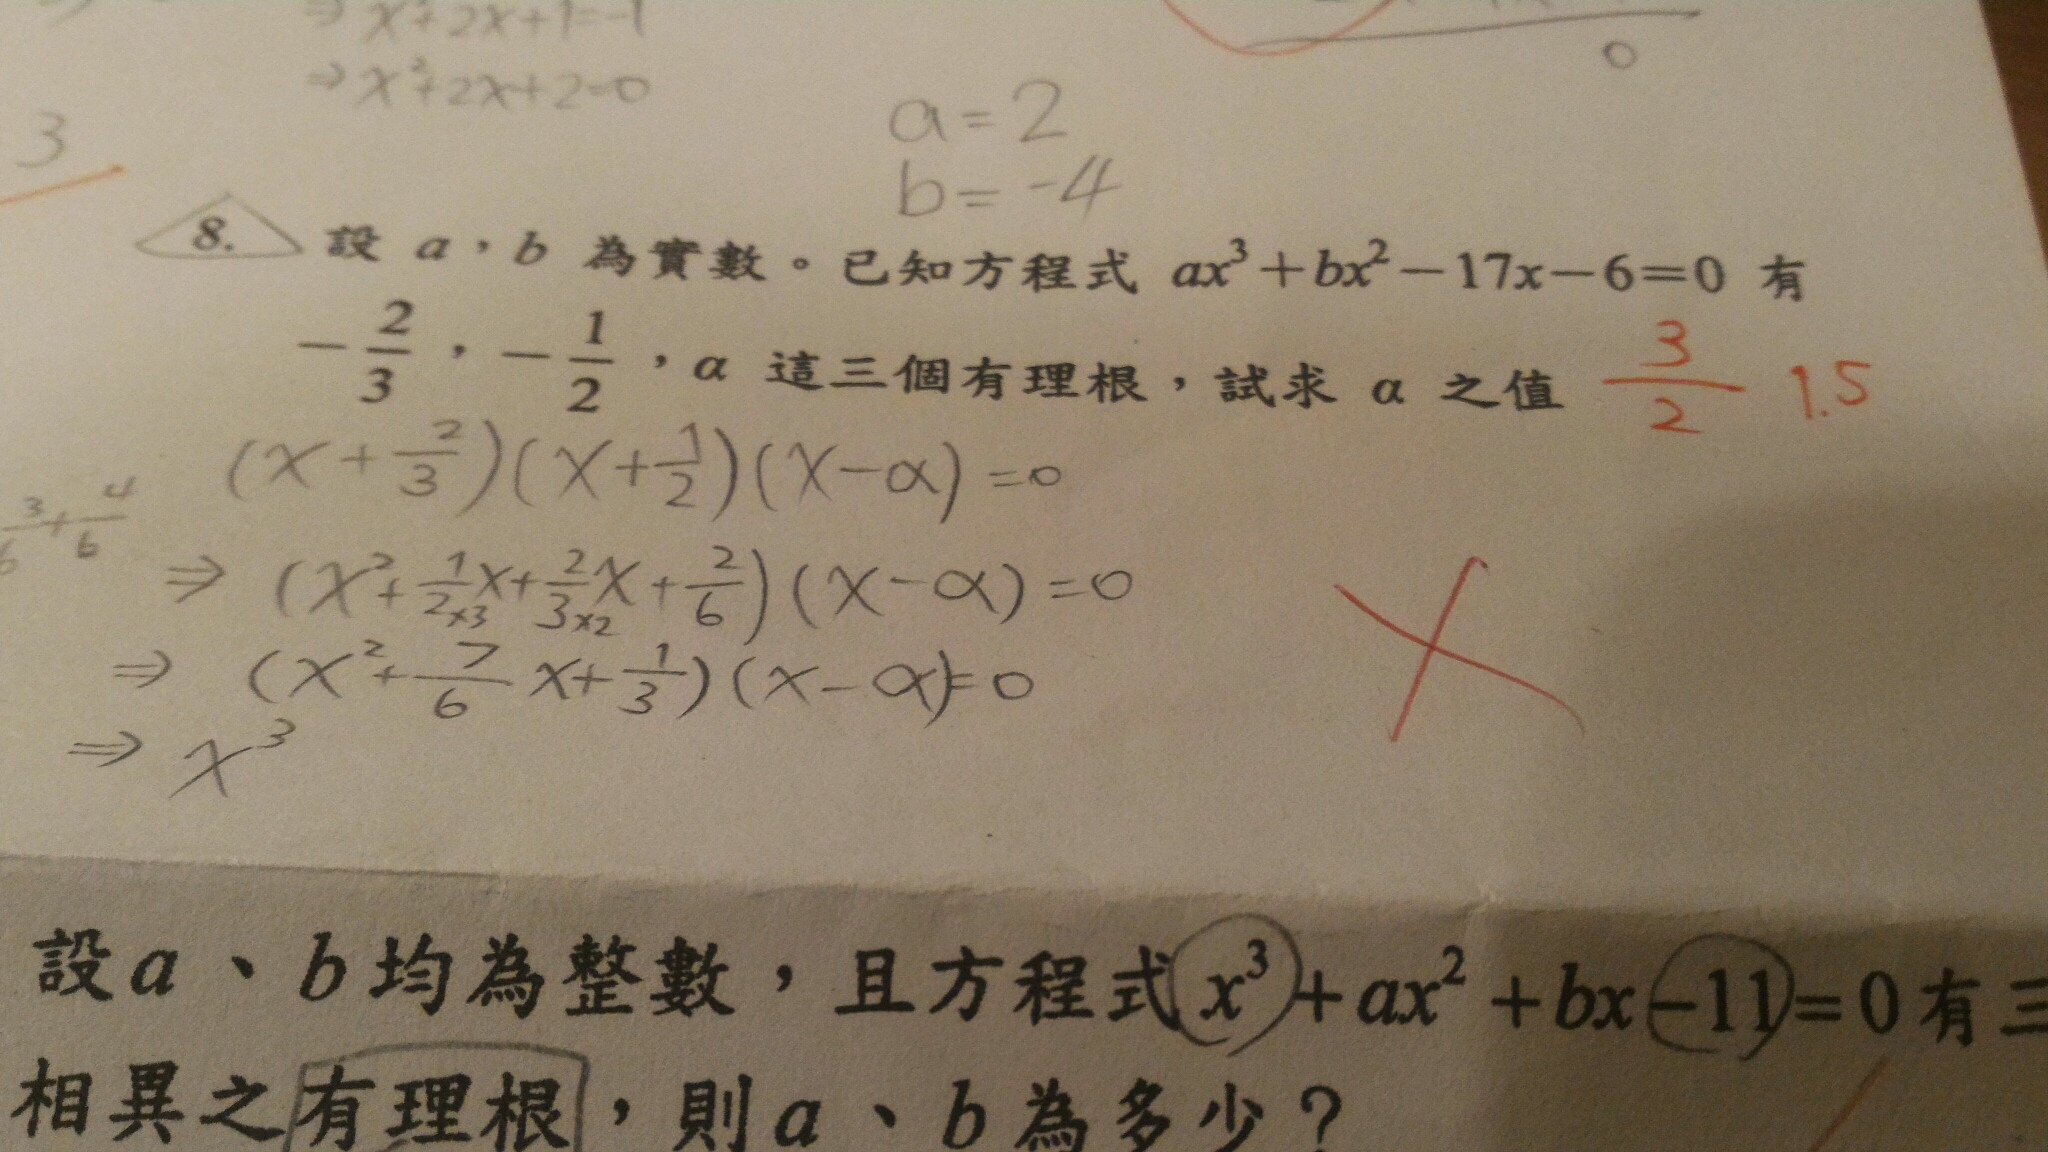 ⇒ x²+2x+1=-1
⇒ x²+2x+2=0
0
3
a=2
b=-4
8. 設 a，b 為實數。已知方程式 ax³+bx²-17x-6=0 有
-2/3，-1/2，α 這三個有理根，試求 α 之值 3/2 1.5
(x+2/3)(x+1/2)(x-α)=0
3/6+4/6
⇒ (x²+1/2x+2/3x+2/6)(x-α)=0
×3 ×2
⇒ (x²+7/6x+1/3)(x-α)=0
⇒ x³
設a、b均為整數，且方程式x³+ax²+bx-11=0有三
相異之有理根，則a、b為多少？